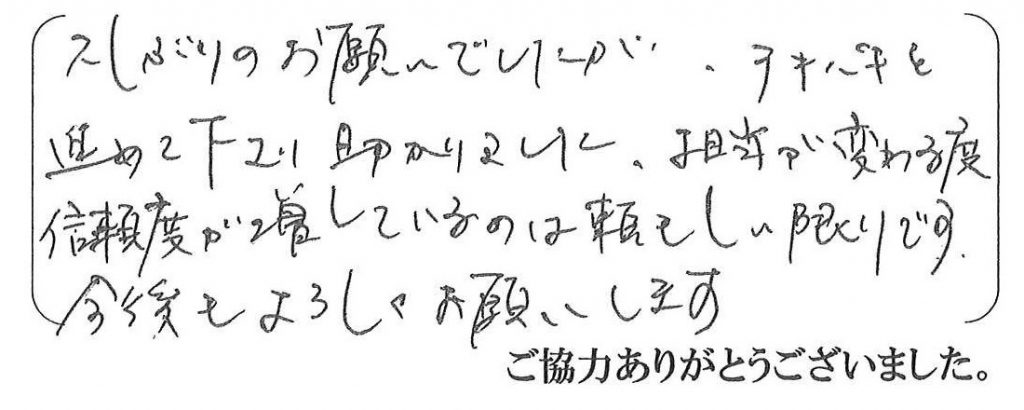 久しぶりのお願いでしたが、テキパキと
進めて下さり助かりました、担当が変わる度
信頼度が増しているのは頼もしい限りです.
今後もよろしくお願いします
ご協力ありがとうございました。